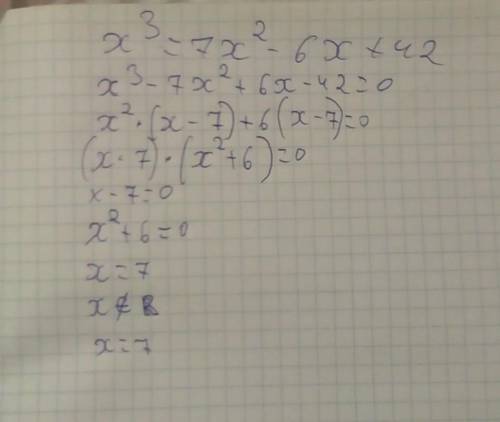 x³=7x²-6x+42
x³-7x²+6x-42=0
x²·(x-7)+6(x-7)=0
(x-7)·(x²+6)=0
x-7=0
x²+6=0
x=7
x∉R
x=7